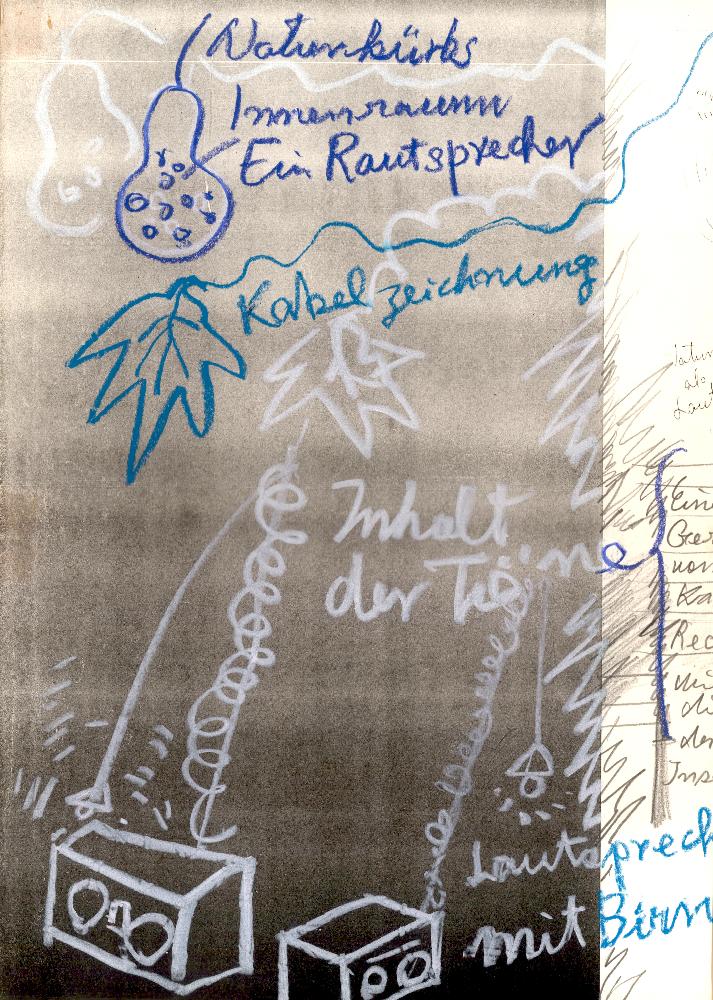 Naturkürbs
Innenraum
Ein Rautsprecher
Kabelzeichnung
Inhalt
der Töne
Lautsprech
mit Birn
als
Laut
Ein
von
Ka
Rec
di
der
Ins